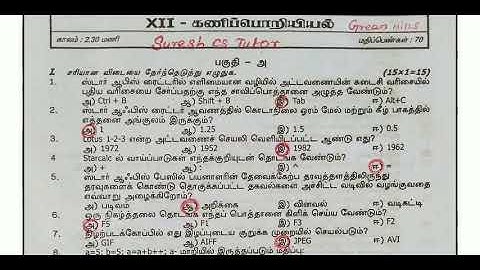 XII - கணிப்பொறியியல்
Green Hills
காலம் : 2.30 மணி Suresh CS Tutor மதிப்பெண்கள் : 70
பகுதி - அ
I. சரியான விடையை தேர்ந்தெடுத்து எழுதுக. (15×1=15)
1. ஸ்டார் ஆஃபிஸ் ரைட்டரில் எளிமையான வழியில் அட்டவணையின் கடைசி வரிசையில்
புதிய வரிசையை சேர்ப்பதற்கு எந்த சாவிப்பொத்தானை அழுத்த வேண்டும்?
அ) Ctrl + B ஆ) Shift + B இ) Tab ஈ) Alt+C
2. ஸ்டார் ஆஃபிஸ் ரைட்டர் ஆவணத்தின் கொடாநிலை ஓரம் மேல் மற்றும் கீழ் பாகத்தில்
எத்தனை அங்குலம் இருக்கும்?
அ) 1 ஆ) 1.25 இ) 1.5 ஈ) 0.5
3. Lotus 1-2-3 என்ற அட்டவணைச் செயலி வெளியிடப்பட்ட ஆண்டு எது?
அ) 1972 ஆ) 1952 இ) 1982 ஈ) 1962
4. Starcalc ல் வாய்ப்பாடுகள் எந்தக்குறியுடன் தொடங்க வேண்டும்?
அ) + ஆ) இ) ஈ) =
5. ஸ்டார் ஆஃபிஸ் பேஸில் பயனாளரின் தேவைக்கேற்ப தரவுத்தளத்திலிருந்து
தரவுகளைக் கொண்டு தொகுக்கப்பட்ட தகவல்களை அச்சிட்ட வடிவில் வழங்குவதை
எவ்வாறு அழைக்கிறோம்?
அ) படிவம் ஆ) அறிக்கை இ) வினவல் ஈ) வடிகட்டி
6. ஒரு நிகழ்த்தலை தொடங்க எந்தப் பொத்தானை கிளிக் செய்ய வேண்டும்?
அ) F5 ஆ) F1 இ) F3 ஈ) F2
7. நிழற்படக்கோப்பில் எது இழப்புடைய குறுக்க முறையில் செயல்படும்?
அ) GIF ஆ) AIFF இ) JPEG ஈ) AVI
8. a=5; b=5; a=a+b++; a- மாறியில் இருத்தப்படும் மதிப்பு: